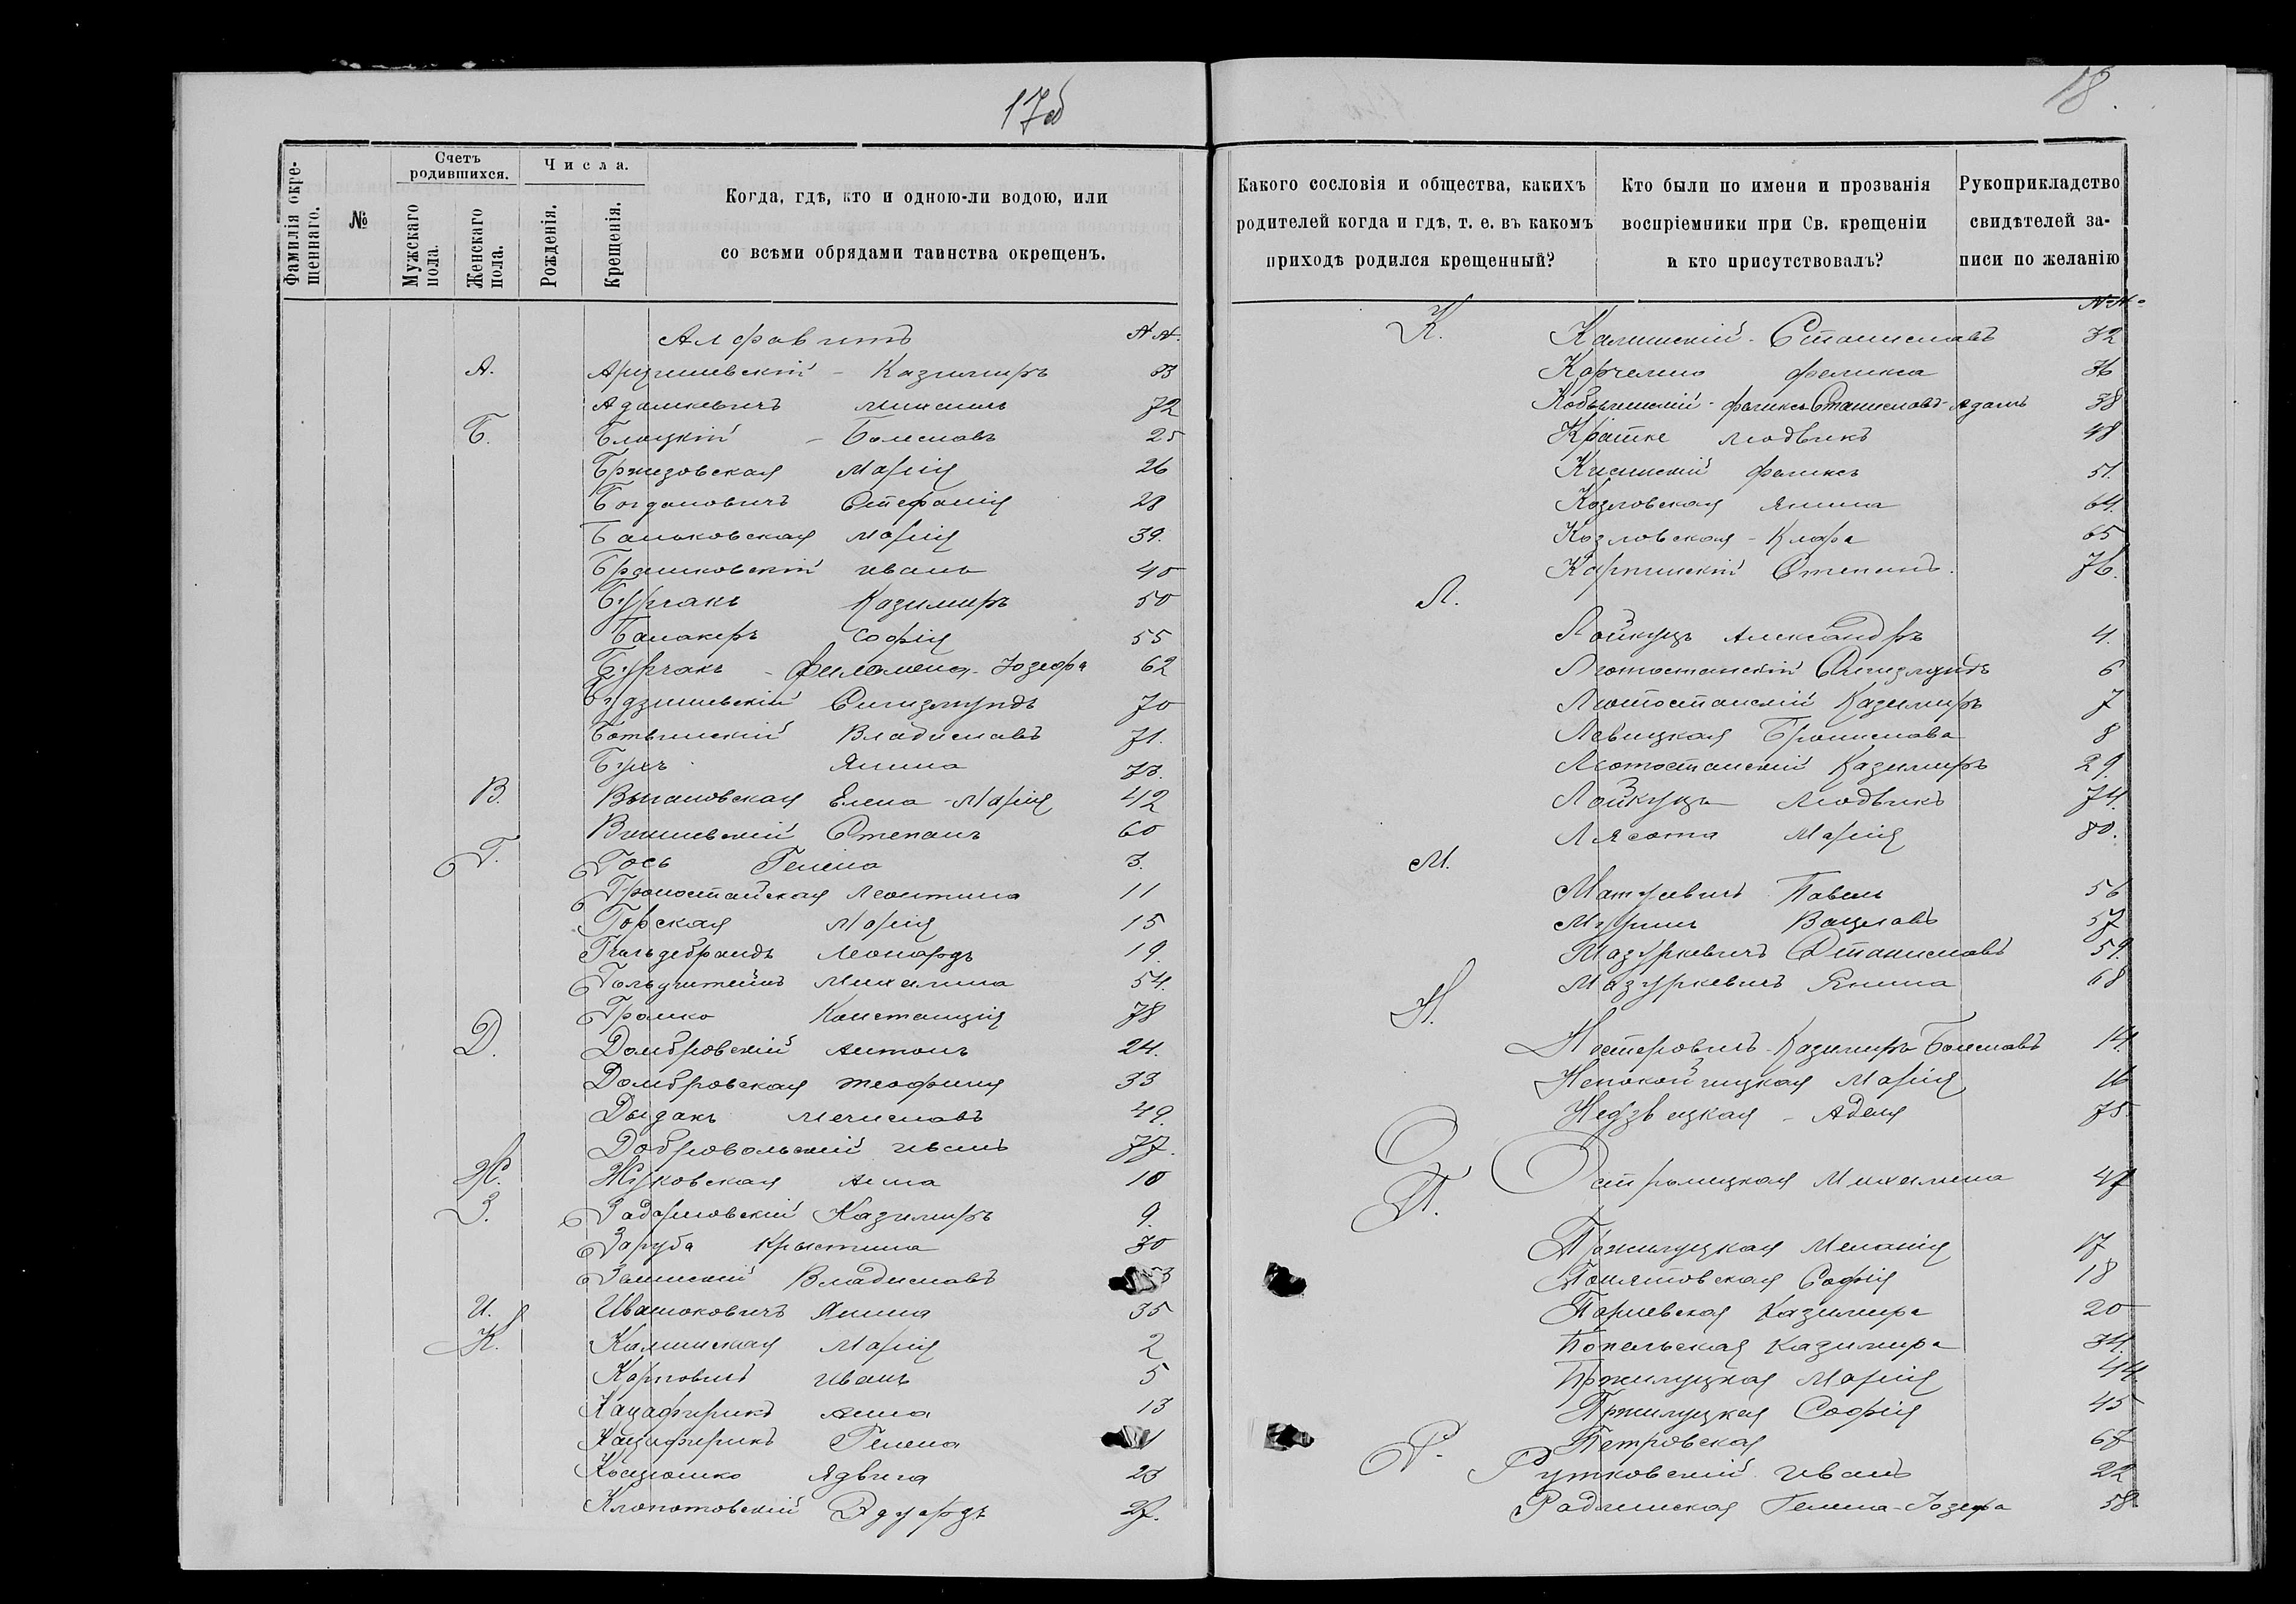 17об
18.
Фамилія окрещеннаго.
№
Счетъ родившихся.
Мужскаго пола.
Женскаго пола.
Числа.
Рожденія.
Крещенія.
Когда, гдѣ, кто и одною-ли водою, или
со всѣми обрядами таинства окрещенъ.
Алфавитъ №№.
А. Казимиръ
Адамкевичъ Михаилъ 72
Б. Блоцкій - Болеславъ 25
Бржезовская Марія 26
Богдановичъ Стефанія 28
Баньковская Марія 39.
Иванъ 40
Бурчакъ Казимиръ 50
Софія 55
Бурчакъ - Филомена-Юзефа 62
Будзишевскій Сигизмундъ 70
Ботвинскій Владиславъ 71.
Янина 73.
В. Елена-Марія 42
Вишневскій Степанъ 60
Г. Гось Гелена 3.
Громостайская Леонтина 11
Горская Марія 15
Гильдебрандъ Леонардъ 19.
Михалина 54.
Громко Констанція 78
Д. Домбровскій Антонъ 24.
Домбровская Теофилія 33
Дыдакъ Мечиславъ 49.
Добровольскій Иванъ 77.
Ж. Жуковская Анна 10
З. Казимиръ 9.
Заруба Крыстина 30
Залинскій Владиславъ 53
И. Ивашковичъ Янина 35
К. Калинская Марія 2
Карповичъ Иванъ 5
Анна 13
Гелена
Косцюшко Ядвига 23
Клопотовскій Эдуардъ 27.
Какого сословія и общества, какихъ
родителей когда и гдѣ, т. е. въ какомъ
приходѣ родился крещенный?
Кто были по имени и прозванія
воспріемники при Св. крещеніи
и кто присутствовалъ?
Рукоприкладство
свидѣтелей за-
писи по желанію
№№
К. Калинскій - Станиславъ 32
Феликса 36
Кобылинскій - Феликсъ Станиславъ-Адамъ 38
Кратке Людвикъ 48
Феликсъ 51.
Козловская Янина 64.
Козловская - Клара 65
Карпинскій Степанъ. 76.
Л.
Лойкуцъ Александръ 4.
Лютостанскій Сигизмундъ 6
Лютостанскій Казимиръ 7
Левицкая Бронислава 8
Лютостанскій Казимиръ 29.
Лойкуцъ Людвикъ 74.
Лясота Марія 80.
М.
Матусевичъ Павелъ 56
Вацлавъ 57
Мазуркевичъ Станиславъ 59.
Мазуркевичъ Янина 68
Н.
Нестеровичъ - Казимиръ Болеславъ 14.
Непокойчицкая Марія 16
Недзвецкая - Аделя 75.
О
Михалина 47
П.
Пржилуцкая Меланія 17
Понятовская Софія 18
Казимира 20
Попельская Казимира 34.
Пржилуцкая Марія 44.
Пржилуцкая Софія 45
Петровская 67
Р. Рутковскій Иванъ 22
Радлинская Гелена-Юзефа 58